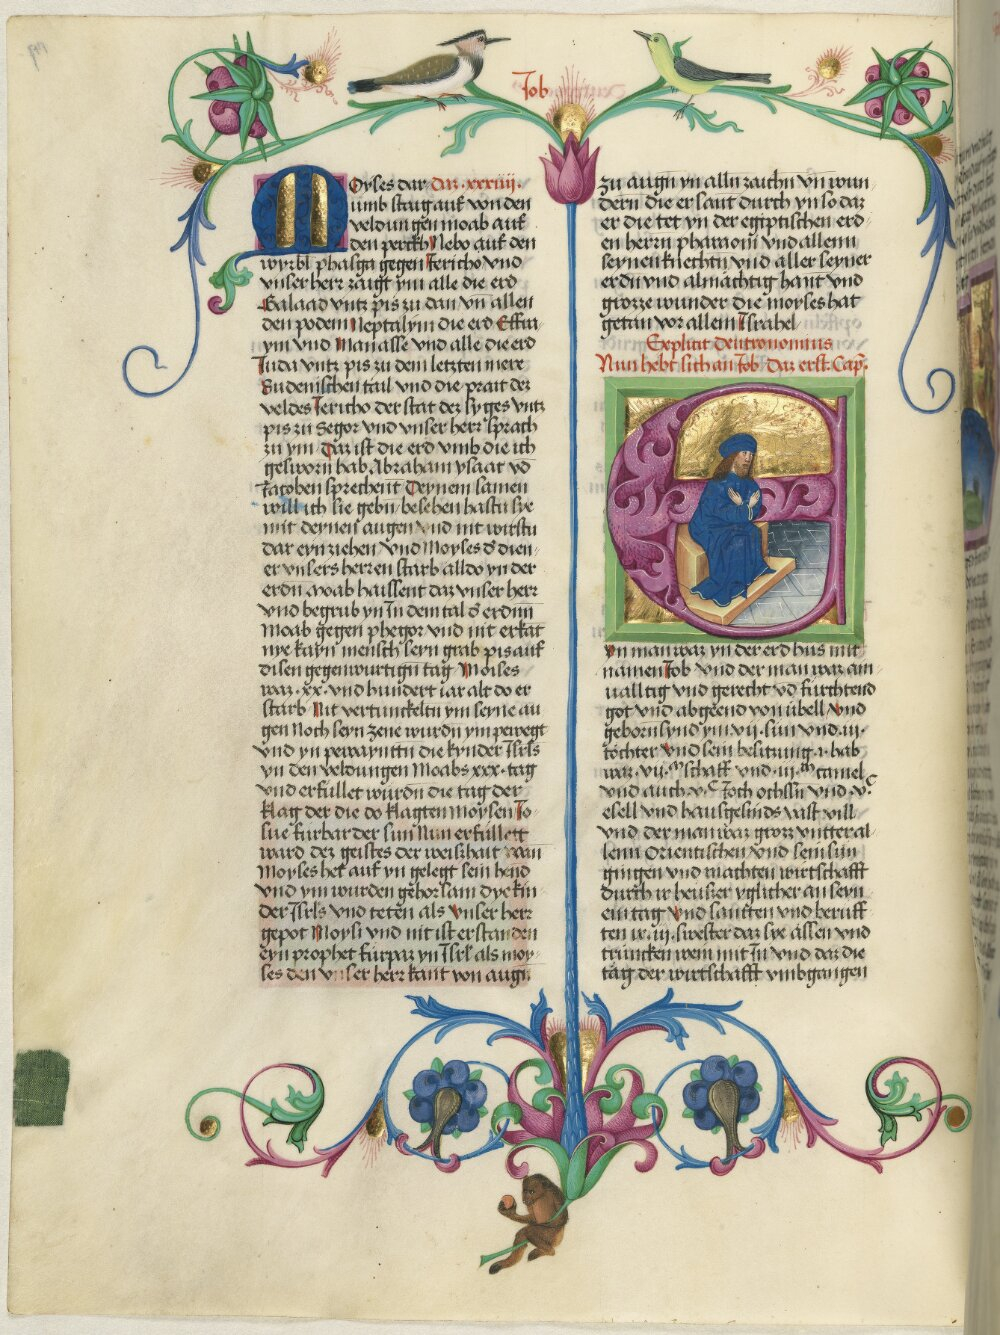 Job
Moyses dar Daz .xxxiiij.
umb staig auf von den
veldungen moab auf
den perckh Nebo auf den
wyrbl phasga gegen Jericho vnd
vnser herr zaigt ym alle die erd
Galaad vntz pis zu dan vn allen
den podem Neptalym die erd Effra
ym vnd Manasse vnd alle die erd
Juda vntz pis zu dem letzten mere
Sudenischen tail vnd die prait dez
veldes Jericho der stat dez syges vntz
pis zu Segor vnd vnser herr sprach
zu ym Daz ist die erd vmb die ich
gesworn hab Abraham ysaac vd
Jacoben sprechent Deynem samen
will ich sie gebn besehen hastu sye
mit deynen augen vnd nit wirstu
dar eyn ziehen vnd Moyses d dien
er vnsers herren starb alldo yn der
erdn Moab haissent daz vnser herr
vnd begrub yn In dem tal d erdnn
Moab gegen phegor vnd nit erkat
nye kayn mensch seyn grab pis auf
disen gegenwurtign tag Moises
waz .xx. vnd hundert iar alt do er
starb Nit vertunckeltn ym seyne au
gen Noch seyn zene wurdn ym pewegt
vnd yn pewayntn die kynder Isrls
yn den veldungen Moabs xxx. tag
vnd erfullet wurdn die tag der
klag der die do klagten Moysen Jo
sue furbar der sun Nun erfullett
ward dez geistes der weißhait wan
Moyses het auf yn gelegt sein hend
vnd ym wurden gehorsam dye kin
der Isrls vnd teten als vnser herr
gepot Moysi vnd nit ist erstanden
eyn prophet furpaz yn Isrl als moy
ses den vnser herr kant von augn
zu augn yn alln zaichn vn wun
dern die er saut durch yn so daz
er die tet yn der egiptischen erd
en herrn pharaoni vnd allenn
seynen knechtn vnd aller seyner
erdn vnd almachtig hant vnd
grozze wunder die moyses hat
getan vor allem Israhel
Explicit Deutronomius
Nun hebt sich an Job Daz erst Cap.
Eyn man waz yn der erd hus mit
namen Job vnd der man waz ain
ualltig vnd gerecht vd furchtend
got vnd abgeend von übell vnd
geborn synd ym vij. sun vnd .iij.
tochter vnd sein besitzung .1. hab
waz .vij. m schaff vnd .iij. m camel
vnd auch v.c Joch ochssn vnd .v.c
esell vnd hausgesinds vast vill
vnd der man waz grozz vntter al
lenn Orientischen vnd sein sun
gingen vnd machten wirtschafft
durch ir heuszer yglicher an seyn
em tag vnd santten vnd beruff
ten ir .iij. swester daz sye assen vnd
truncken wein mit In vnd daz die
tag der wirtschafft vmbgangen